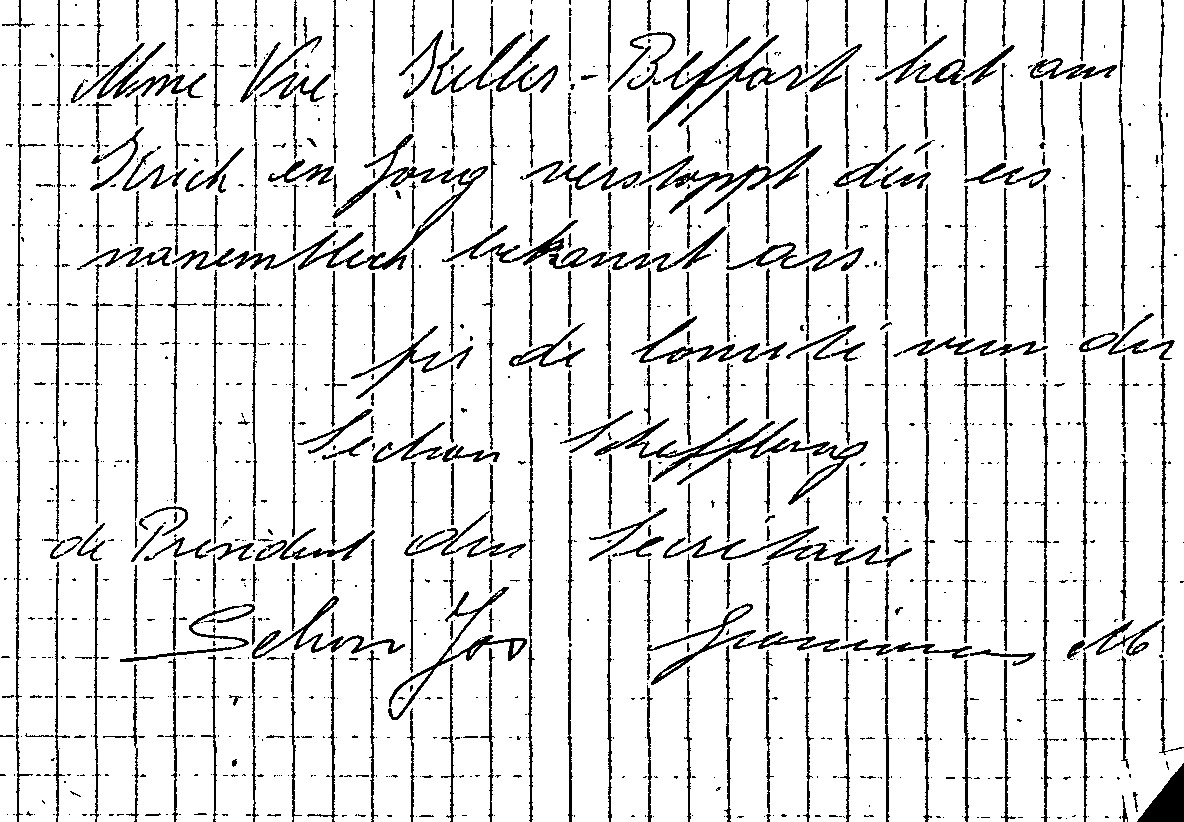 Mme Vve Keller-Beffort hat am
Krich en Jong verstoppt déi eis
nanemtlech bekannt ass.
fir de Comité vun der
Section Schifflang
de Président den Secrétaire
Schon Jos M.